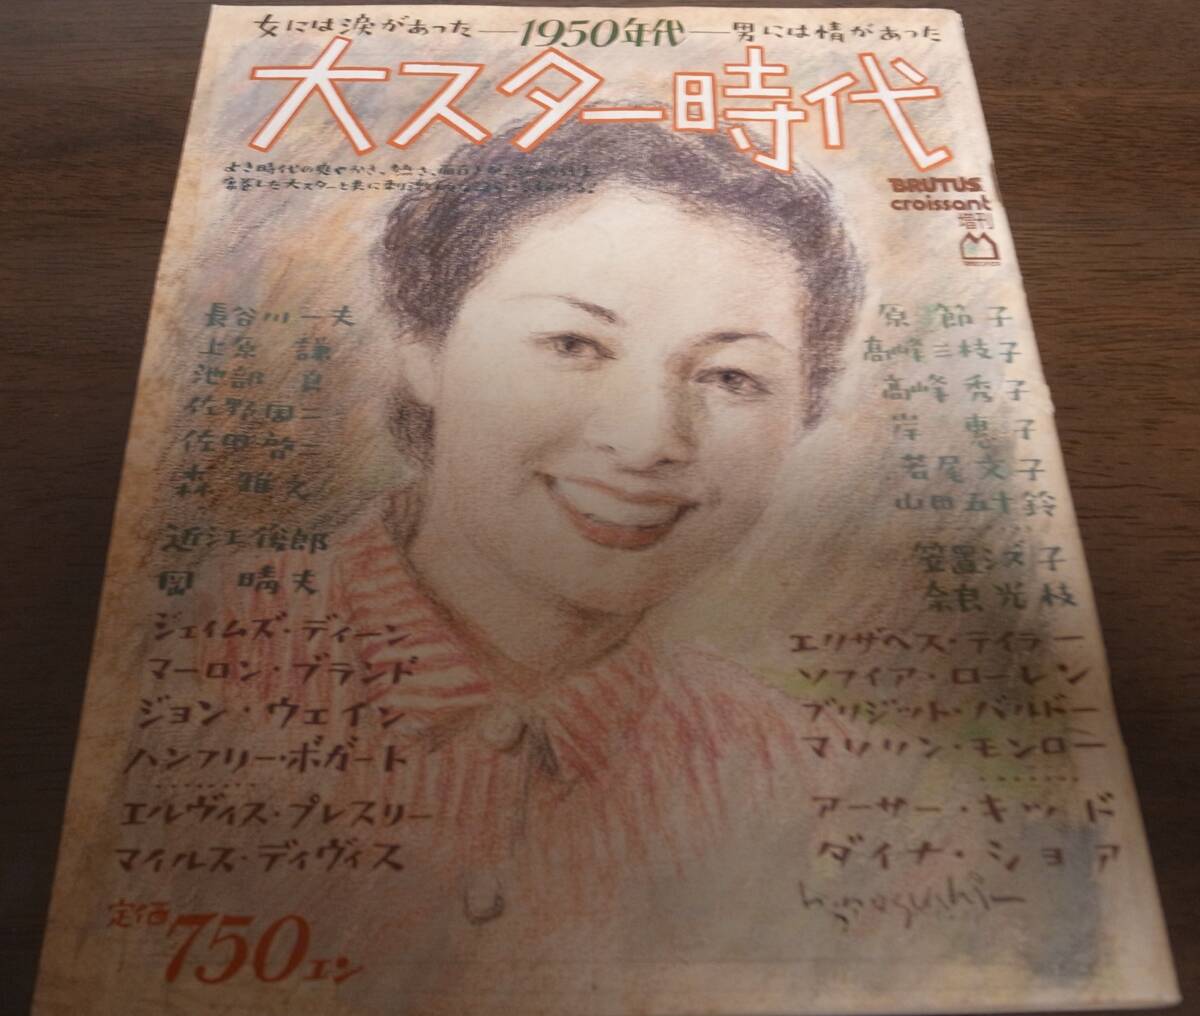 女には涙があった―1950年代―男には情があった
大スター時代
よき時代の爽やかさ、
BRUTUS
croissant
増刊
長谷川一夫
上原 謙
池部 良
佐野周二
佐田啓二
森 雅之
近江俊郎
岡 晴夫
ジェイムズ・ディーン
マーロン・ブランド
ジョン・ウェイン
ハンフリー・ボガート
………
エルヴィス・プレスリー
マイルス・ディヴィス
原 節子
高峰三枝子
高峰秀子
岸 惠子
若尾文子
山田五十鈴
笠置シヅ子
奈良光枝
エリザベス・テイラー
ソフィア・ローレン
ブリジット・バルドー
マリリン・モンロー
………
アーサー・キッド
ダイナ・ショア
定価750エン